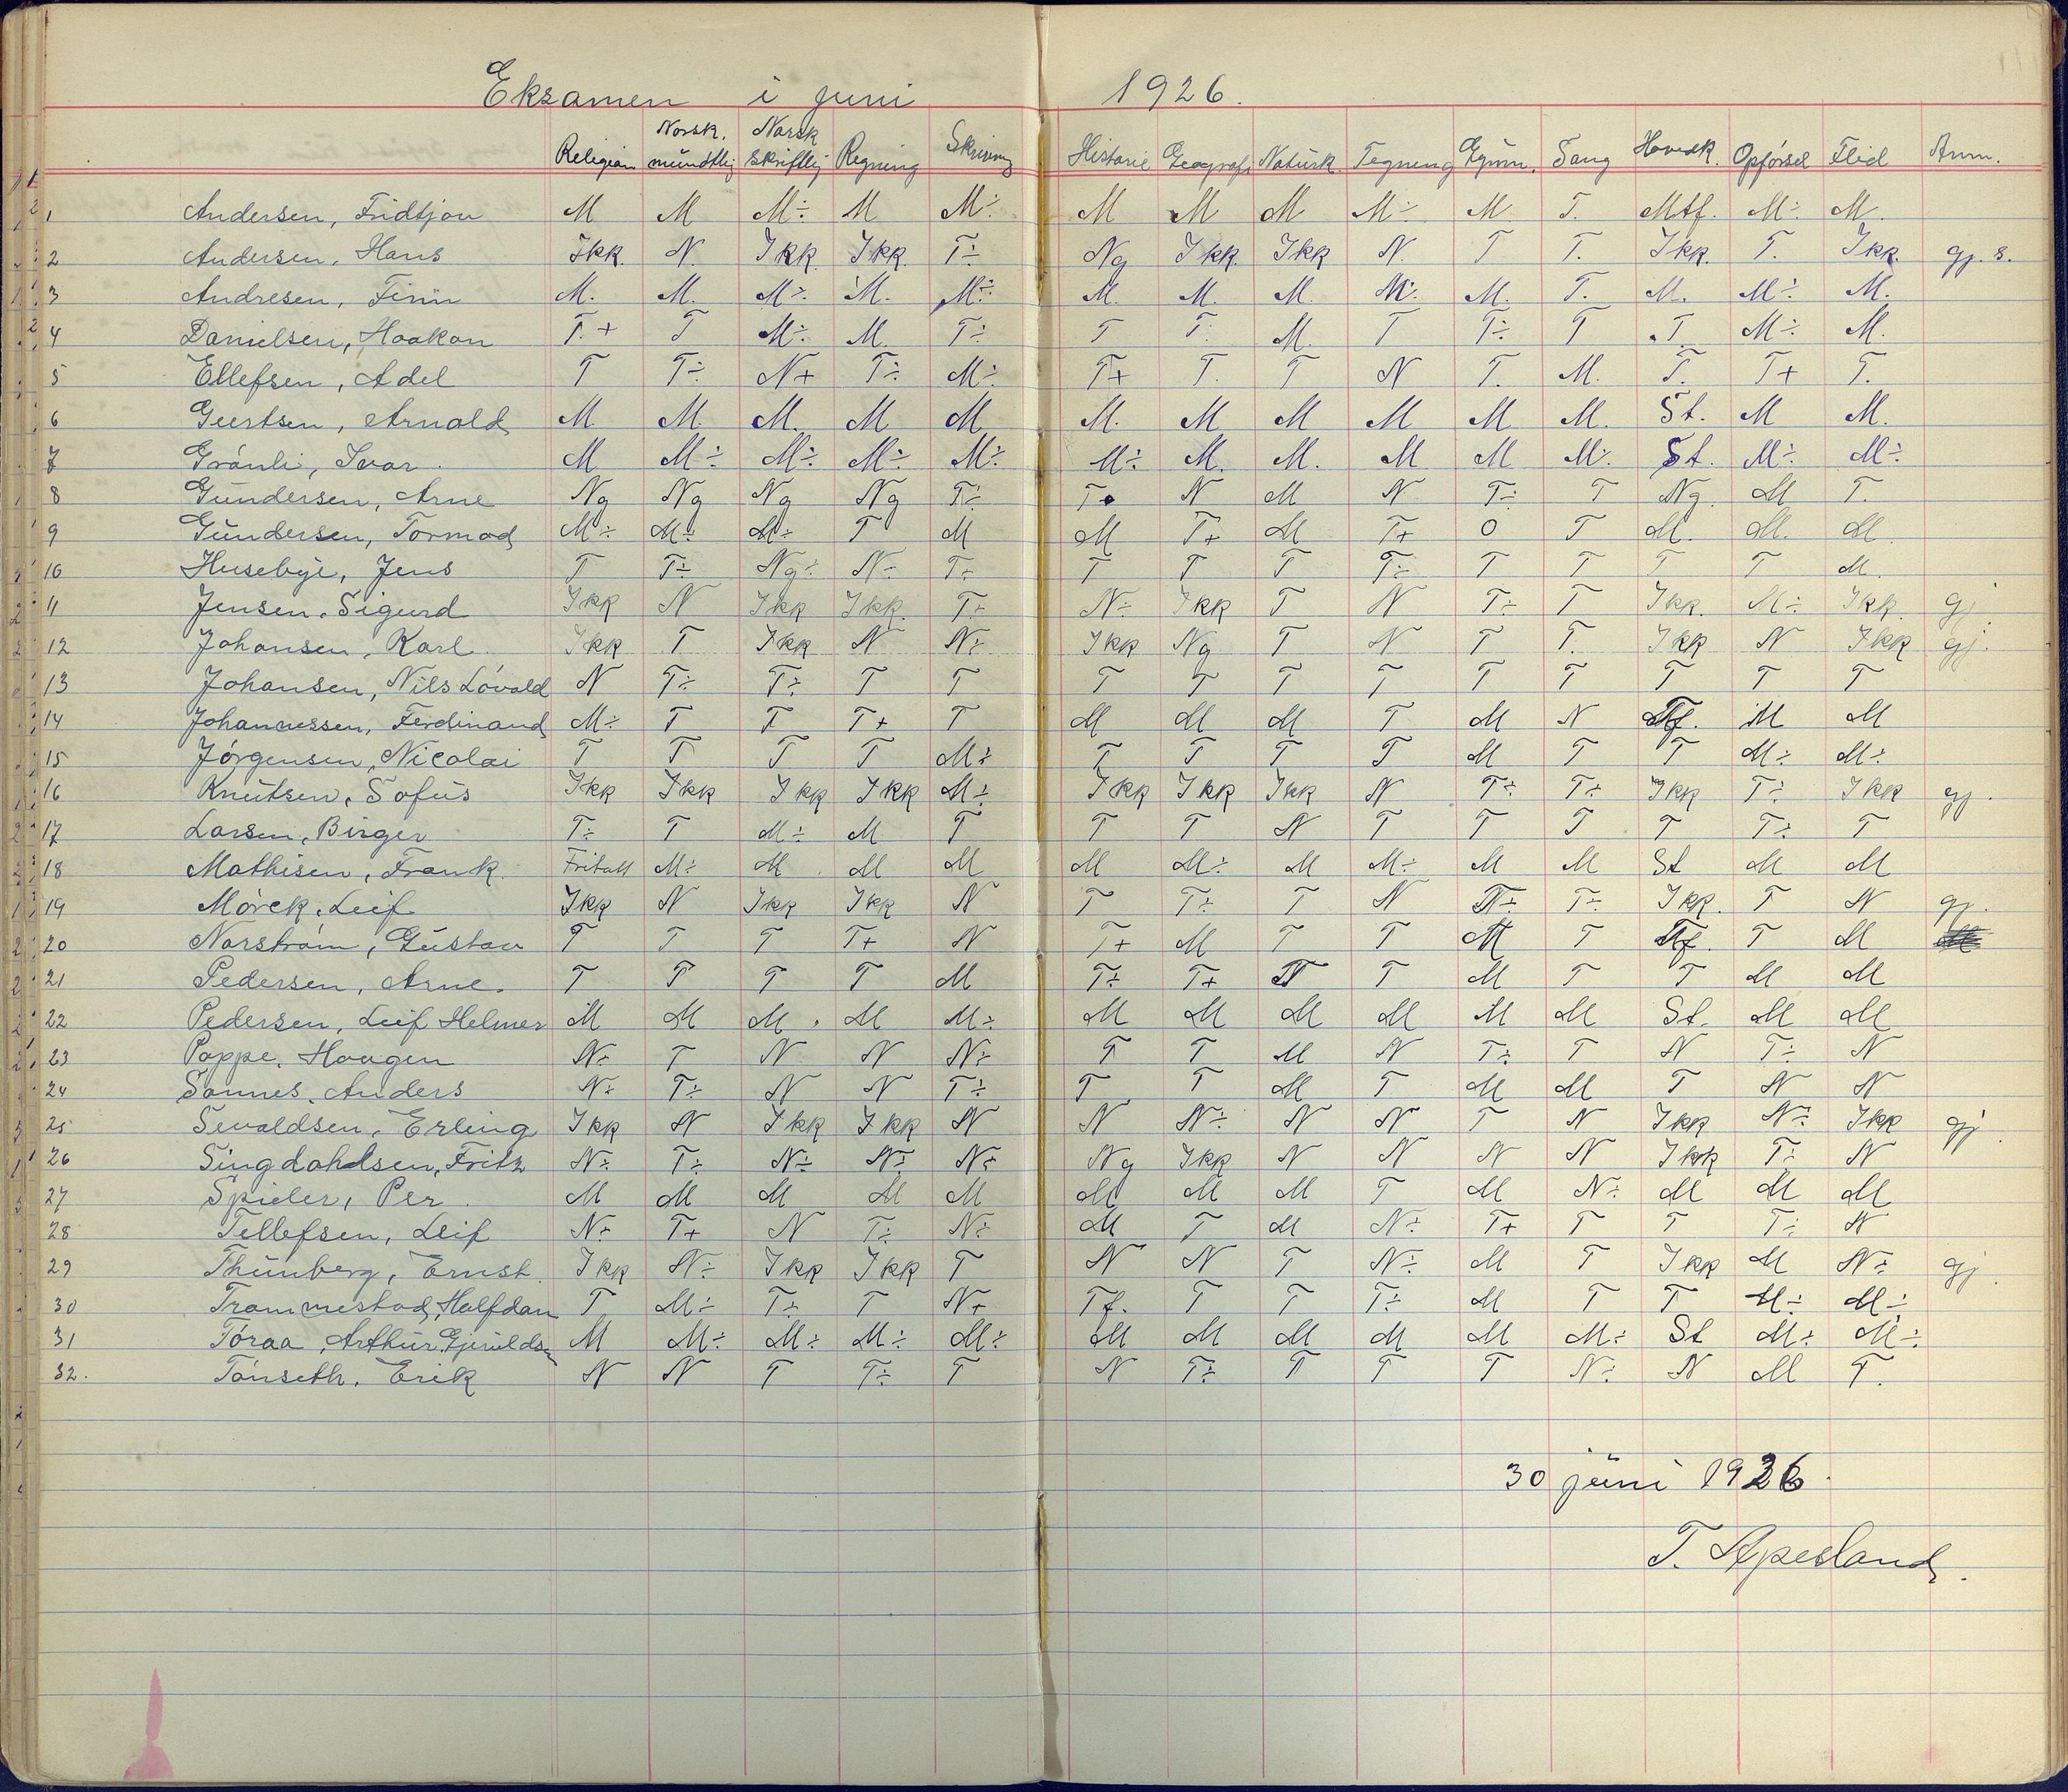 Eksamen i juni 1926.
Religion Norsk. mündtlig Norsk skriftlig Regning Skrivning Historie Geografi Natürk. Tegning Gymn. Sang Hovedk. Opförsel Flid Anm.
1 Andersen, Fridtjon M M M÷ M M÷ M M M M÷ M T. Mtf. M÷ M.
2 Andersen, Hans Ikk. N. Ikk. Ikk. T÷ Ng Ikk. Ikk N. T T. Ikk. T. Ikk. gj. s.
3 Andresen, Finn M. M. M÷ M. M÷ M. M. M. M÷ M. T. M. M÷ M.
4 Danielsen, Haakon T.+ T M÷ M. T÷ T T. M. T T÷ T T. M÷ M.
5 Ellefsen, Adel T T÷ N+ T÷ M÷ T+ T. T N T. M. T. T+ T.
6 Geertsen, Arnold M. M. M. M M M. M M M M M. St. M M.
7 Grönli, Ivar. M M÷ M÷ M÷ M÷ M÷ M. M. M M M. St. M÷ M÷
8 Gündersen, Arne Ng Ng Ng Ng T÷ T N M N T÷ T Ng. M T.
9 Gündersen, Tormod M÷ M÷ M÷ T M M T+ M T+ O T M. M. M.
10 Husebye, Jens T T÷ Ng÷ N÷ T÷ T T T T÷ T T T T M.
11 Jensen, Sigurd Ikk N Ikk Ikk. T÷ N÷ Ikk T N T÷ T Ikk. M÷ Ikk. gj.
12 Johansen, Karl Ikk T Ikk N N÷ Ikk Ng T N T T. Ikk N Ikk gj.
13 Johansen, Nils Lövold N T÷ T÷ T T T T T T T T T T T
14 Johannessen, Ferdinand M÷ T T T+ T M M M T M N Tf. M M
15 Jörgensen, Nicolai T T T T M÷ T T T T M T T M÷ M÷
16 Knütsen, Sofüs Ikk Ikk Ikk Ikk M÷ Ikk Ikk Ikk N T÷ T÷ Ikk T÷ Ikk gj.
17 Larsen, Birger T÷ T M÷ M T T T N T T T T T÷ T
18 Mathisen, Frank. Fritatt M÷ M M M M M÷ M M÷ M M St M M
19 Mörck, Leif Ikk N Ikk Ikk N T T÷ T N N÷ T÷ Ikk. T N gj.
20 Norström, Güstav T T T T+ N T+ M T T M T Tf. T M
21 Pedersen, Arne. T T T T M T÷ T+ T T M T T M M
22 Pedersen, Leif Helmer M M M. M M÷ M M M M M M St. M M
23 Poppe, Haagen N÷ T N N N÷ T T M N T÷ T N T÷ N
24 Sannes, Anders N÷ T÷ N N T÷ T T M T M M T N N
25 Sevaldsen, Erling Ikk N Ikk Ikk N N N÷ N N T N Ikk N÷ Ikk gj.
26 Singdahlsen, Fritz N÷ T÷ N÷ N÷ N÷ Ng Ikk N N N N Ikk T÷ N
27 Spieler, Per. M M M M M M M M T M N÷ M M M
28 Tellefsen, Leif N÷ T+ N T÷ N÷ M T M N÷ T+ T T T÷ N
29 Thünberg, Ernst. Ikk N÷ Ikk Ikk T N N T N÷ M T Ikk M N÷ gj.
30 Trommestad, Halfdan T M÷ T÷ T N+ Tf. T T T÷ M T T M÷ M÷
31 Töraa, Arthur Gjeruldsen M M÷ M÷ M÷ M÷ M M M M M M÷ St M÷ M÷
32. Tönseth, Erik N N T T÷ T N T÷ T T T N÷ N M T.
30 jüni 1926.
T. Apesland.